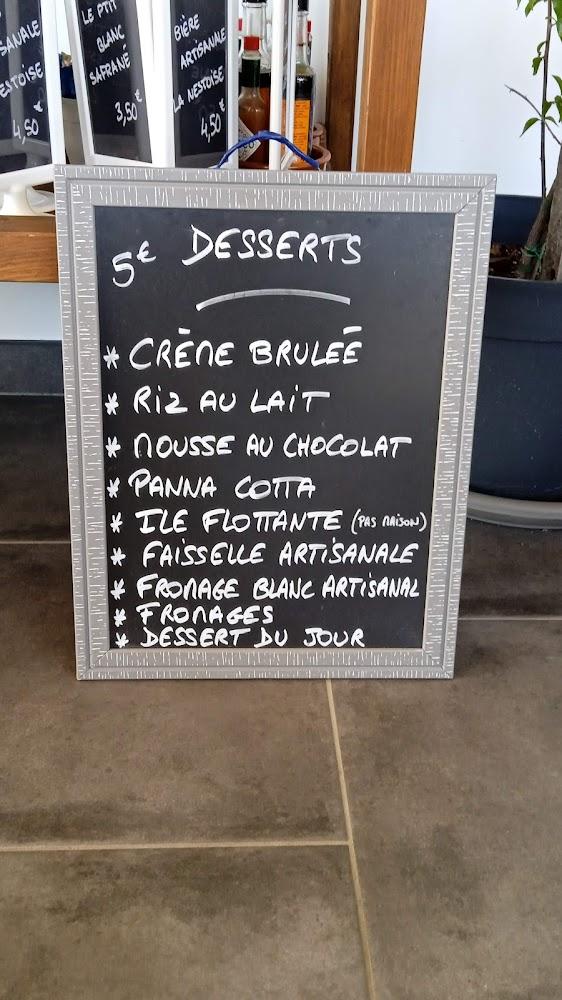 SANALE
ESTOISE
4,50 €
LE PTIT
BLANC
SAFRANÉ
3,50 €
BIÈRE
ARTISANALE
LA NESTOISE
4,50 €
5€ DESSERTS
* CRÈME BRULEÉ
* RIZ AU LAIT
* MOUSSE AU CHOCOLAT
* PANNA COTTA
* ILE FLOTTANTE (PAS MAISON)
* FAISSELLE ARTISANALE
* FROMAGE BLANC ARTISANAL
* FROMAGES
* DESSERT DU JOUR